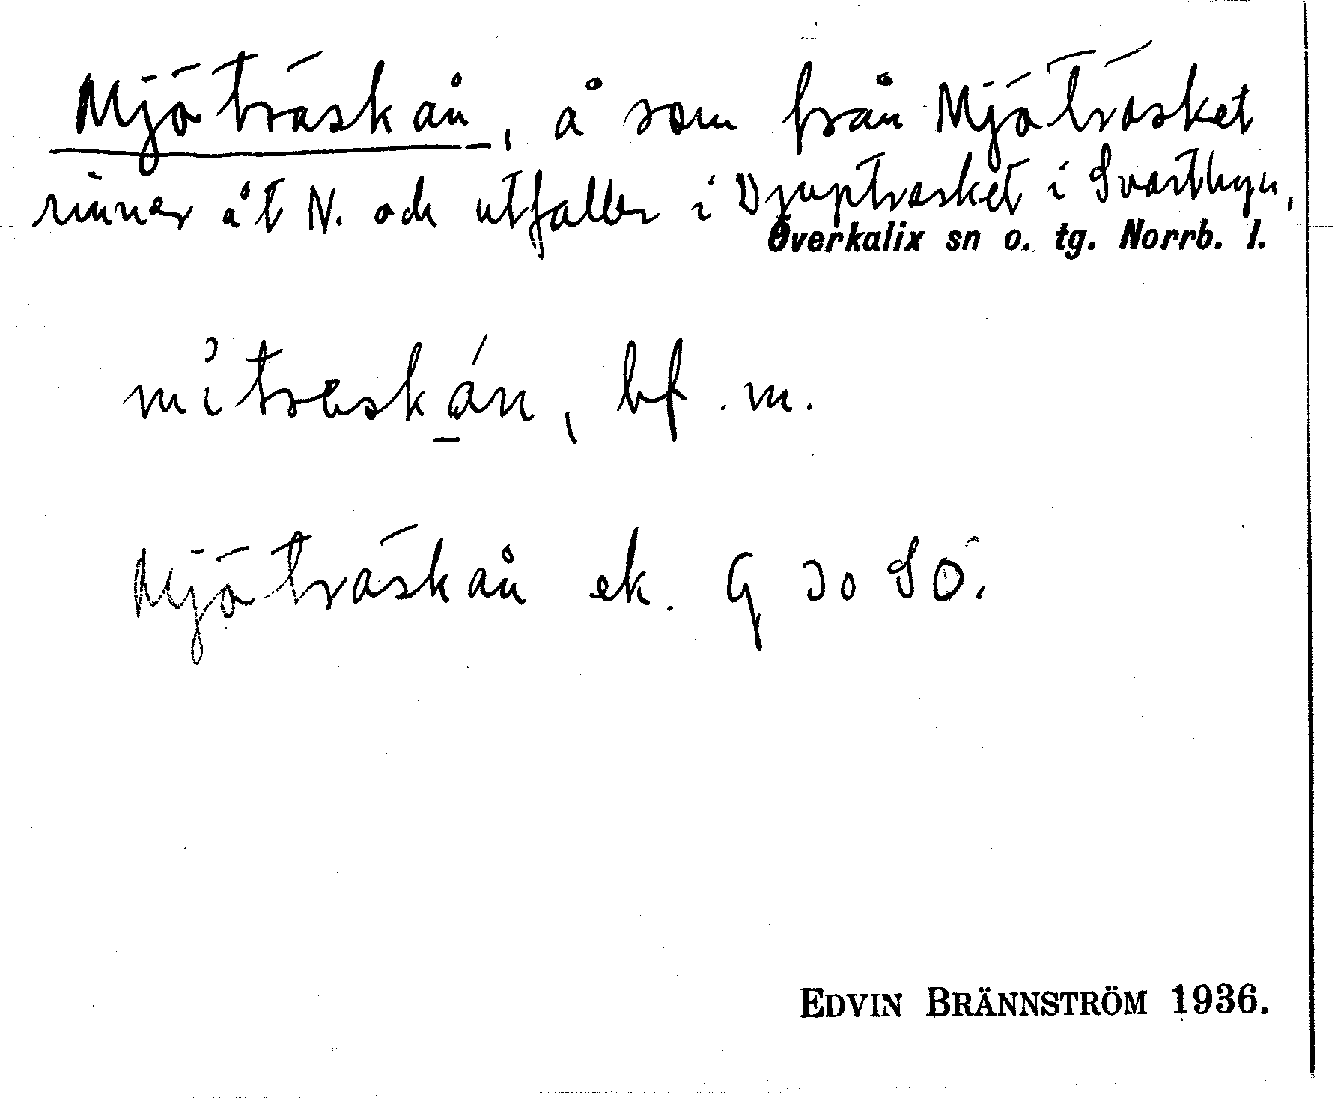 Mjöträskån, å som från Mjöträsket
rinner åt N. och utfaller i Djupträsket i Svartbyn,
Överkalix sn o. tg. Norrb. l.
mitreskån, bf. m.
Mjöträskån ek. G 30 SO.
EDVIN BRÄNNSTRÖM 1936.